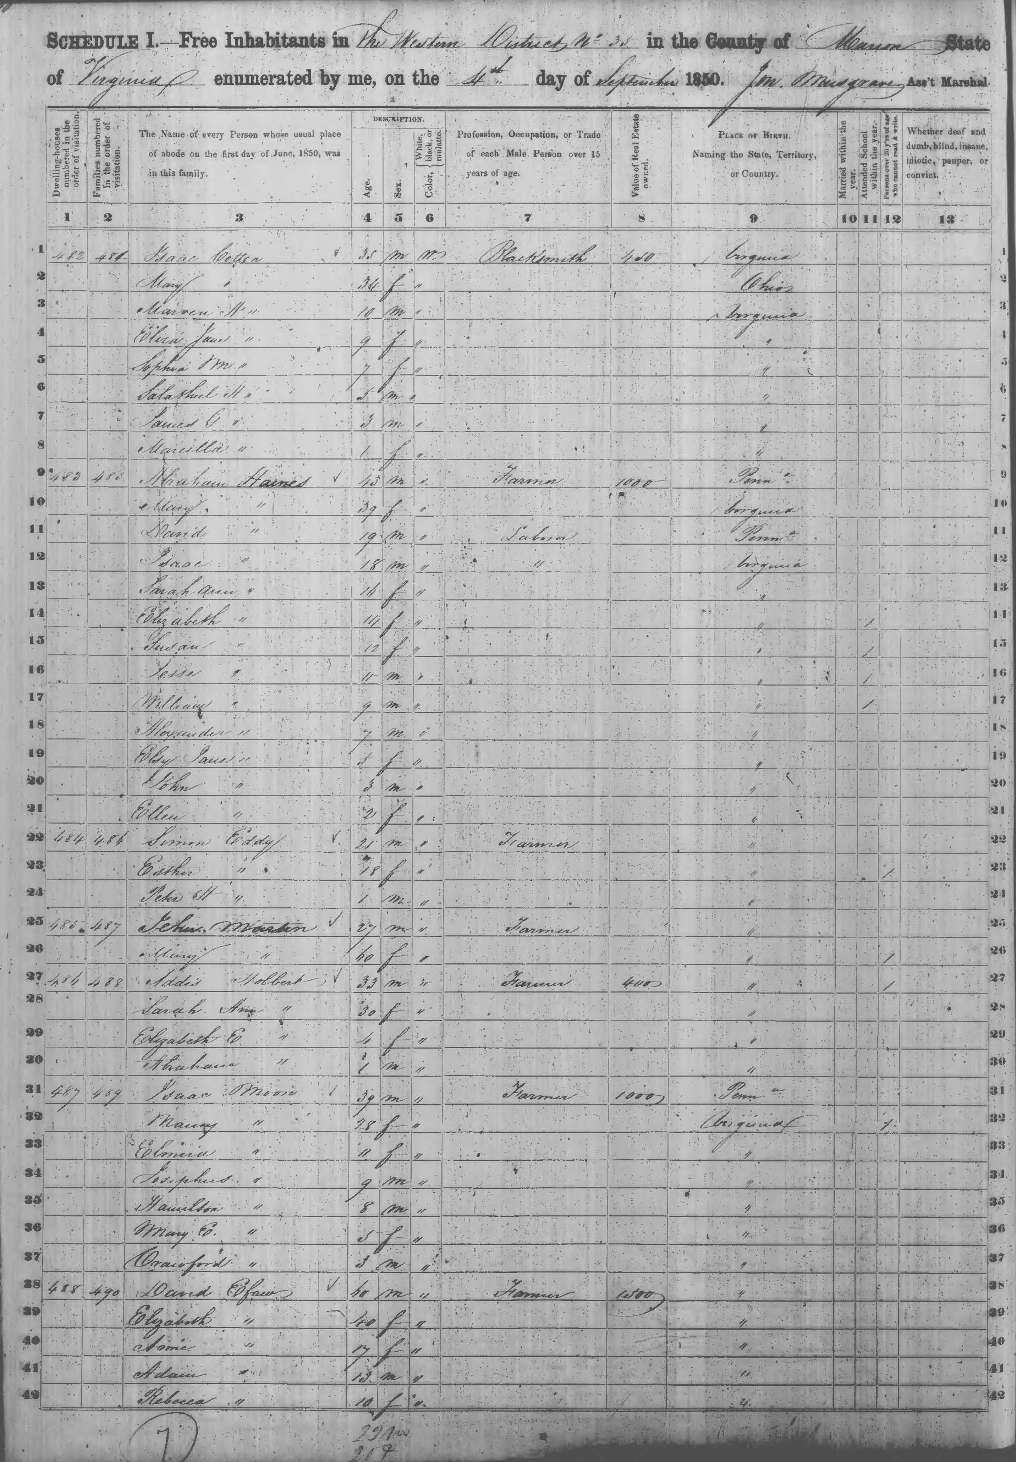 SCHEDULE I.—Free Inhabitants in The Western District No 38 in the County of Marion State
of Virginia enumerated by me, on the 4th day of September 1850. Jon. Musgrave Ass't Marshal
Dwelling-houses numbered in the order of visitation.
Families numbered in the order of visitation.
The Name of every Person whose usual place of abode on the first day of June, 1850, was in this family.
DESCRIPTION.
Age.
Sex.
Color, White, black, or mulatto.
Profession, Occupation, or Trade of each Male Person over 15 years of age.
Value of Real Estate owned.
PLACE OF BIRTH. Naming the State, Territory, or Country.
Married within the year.
Attended School within the year.
Persons over 20 y'rs of age who cannot read & write.
Whether deaf and dumb, blind, insane, idiotic, pauper, or convict.
1 2 3 4 5 6 7 8 9 10 11 12 13
1 482 Isaac 35 m W Blacksmith Virginia 1
2 Mary " 34 f " Ohio 2
3 " 10 m " Virginia 3
4 Eliza Jane " 9 f " " 4
5 Sophia M " 7 f " " 5
6 Salathiel " 5 m " " 6
7 James G " 3 m " " 7
8 " 1 f " " 8
9 483 485 Abraham Haines 45 m " Farmer 1000 Penna 9
10 Mary " 39 f " Virginia 10
11 David " 19 m " Labour Penna 11
12 Isaac " 18 m " " Virginia 12
13 Sarah Ann " 14 f " " 13
14 Elizabeth " 14 f " " 1 14
15 Susan " 12 f " " 1 15
16 Jesse " m " " 1 16
17 William " 9 m " " 1 17
18 Alexander " 7 m " " 18
19 Elsy Jane " 5 f " " 19
20 John " 3 m " " 20
21 Ellen " 2 f " " 21
22 484 486 Simon Eddy 21 m " Farmer " 22
23 Esther " 18 f " " 1 23
24 Peter " 1 m " " 24
25 485 487 John Martin 27 m " Farmer " 25
26 " f " " 1 26
27 486 488 Addis Holbert 33 m " Farmer 400 " 1 27
28 Sarah Ann " 30 f " " 28
29 Elizabeth E " 4 f " " 29
30 Abraham " 1 m " " 30
31 487 489 Isaac Moore 39 m " Farmer 1000 Penna 31
32 " 28 f " Virginia 1 32
33 Elmira " 11 f " " 33
34 Josephus " 9 m " " 34
35 Hamilton " 8 m " " 35
36 Mary E. " 5 f " " 36
37 Crawford " 3 m " " 37
38 488 490 David Efaw 40 m " Farmer " 38
39 Elizabeth " 40 f " " 39
40 " 17 f " " 40
41 Adam " 13 m " " 41
42 Rebecca " 10 f " " 42